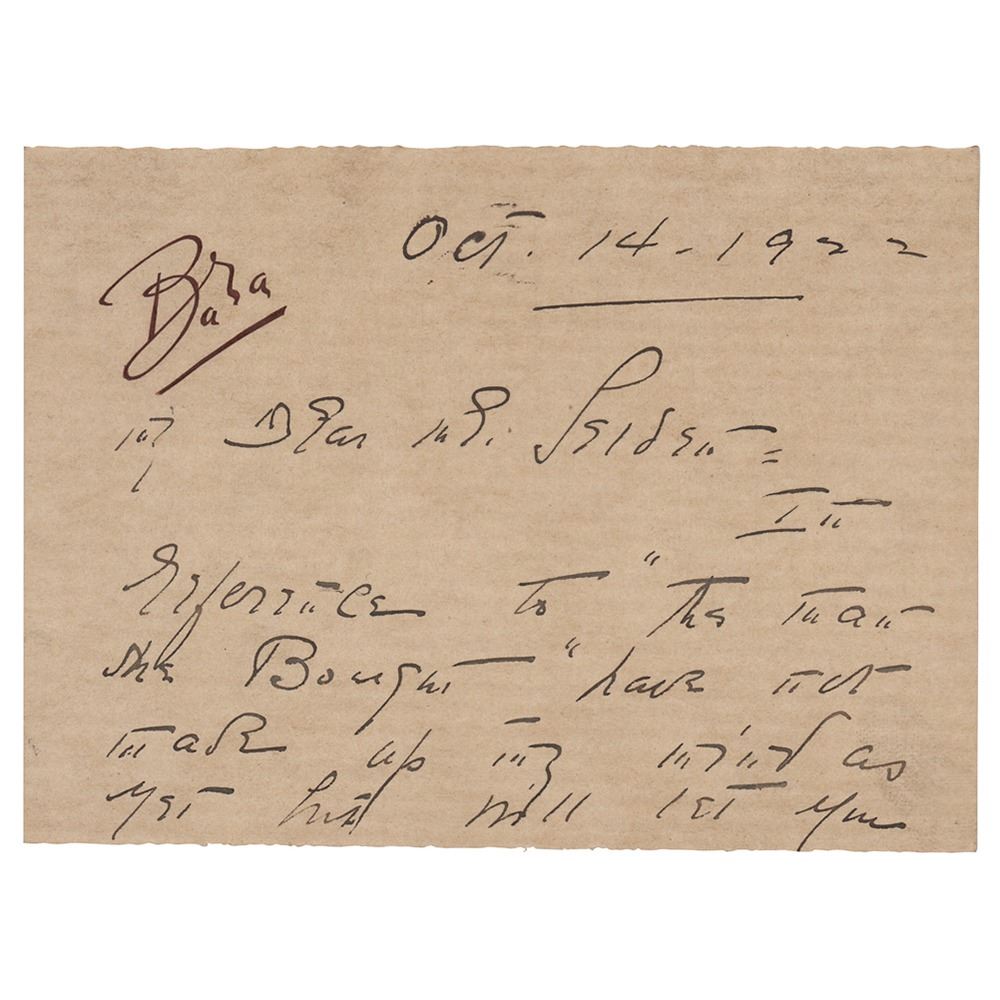 Bara
Oct. 14 - 1922
my Dear Mr. Selden =
In
reference to "the man
she Bought" have not
made up my mind as
yet but will let you